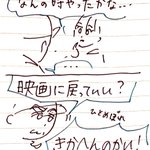 なんの時やったかな…
…
映画に戻っていい?
きかへんのかい!